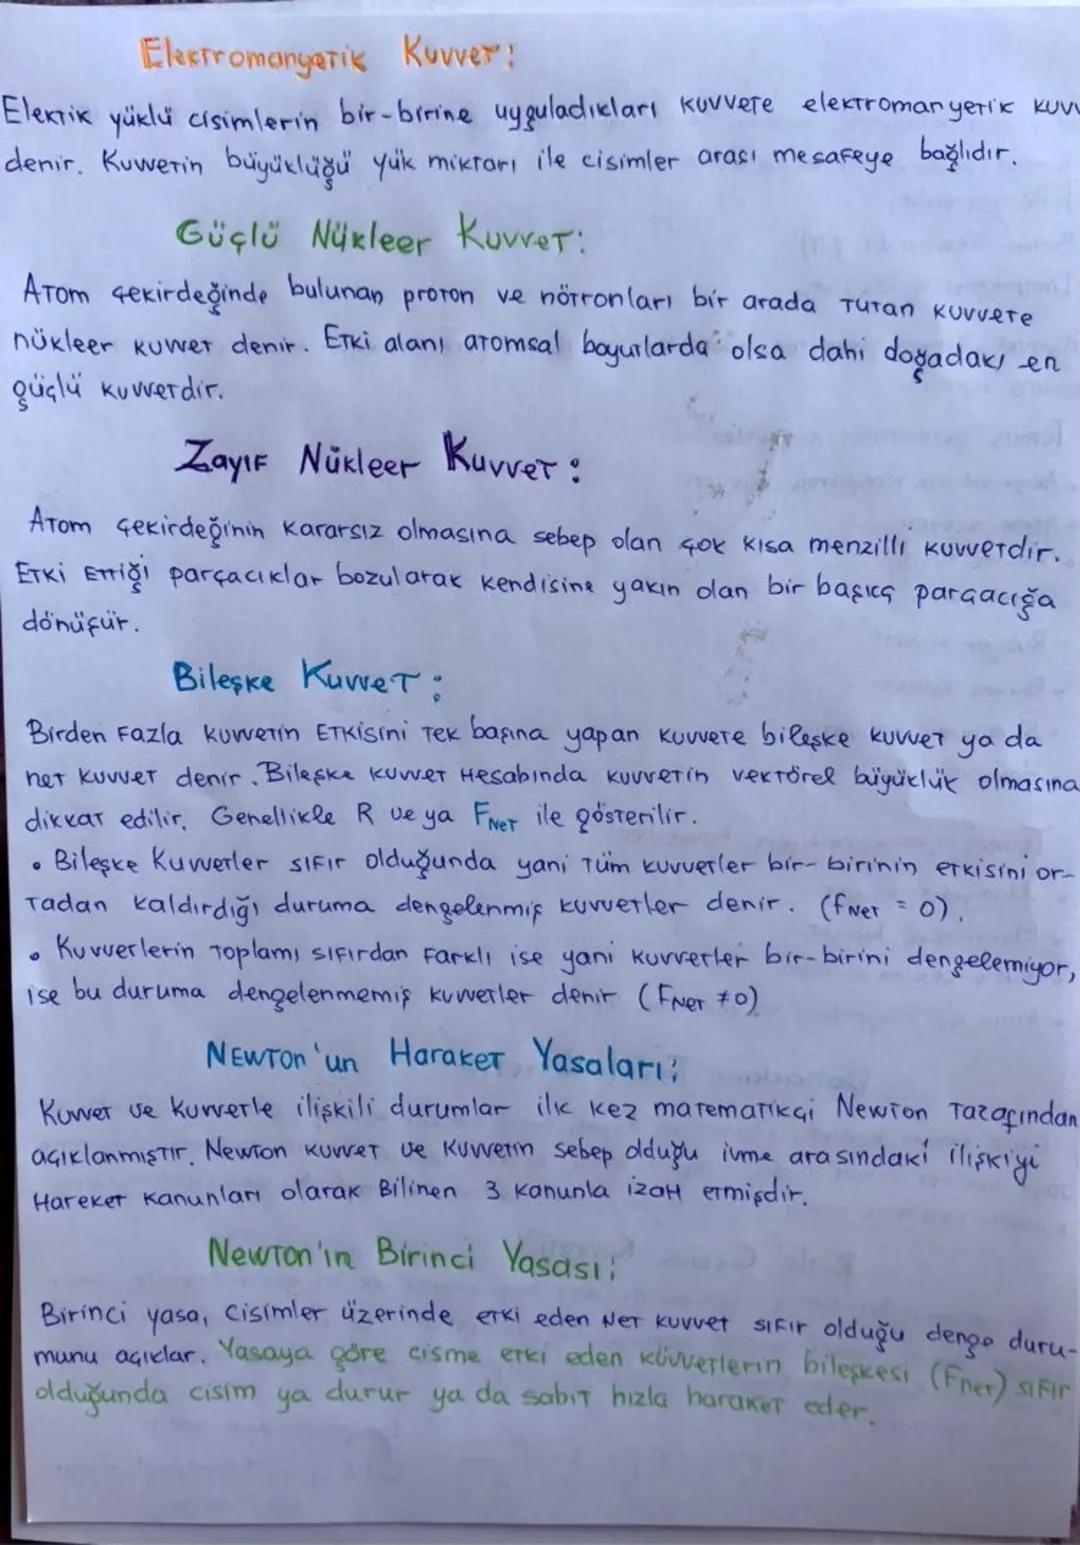 Elektromanyetik Kuvvet:
Elektik yüklü cisimlerin bir-birine uyguladıkları kuvvete elektromanyetik kuvv
denir. Kuvvetin büyüklüğü yük miktarı ile cisimler arası mesafeye bağlıdır.
Güçlü Nükleer Kuvvet:
Atom çekirdeğinde bulunan proton ve nötronları bir arada tutan kuvvete
nükleer kuvvet denir. Etki alanı atomsal boyutlarda olsa dahi doğadaki en
güçlü kuvvetdir.
Zayıf Nükleer Kuvvet:
Atom çekirdeğinin kararsız olmasına sebep olan çok kısa menzilli kuvvetdir.
Etki Ettiği parçacıklar bozularak kendisine yakın olan bir başka parçacığa
dönüşür.
Bileşke Kuvvet:
Birden Fazla kuvvetin Etkisini tek başına yapan kuvvete bileşke kuvvet ya da
net kuvvet denir. Bileşke kuvvet Hesabında kuvvetin vektörel büyüklük olmasına
dikkat edilir. Genellikle R ve ya FNet ile gösterilir.
• Bileşke Kuvvetler sıfır olduğunda yani tüm kuvvetler bir-birinin etkisini or-
tadan kaldırdığı duruma dengelenmiş kuvvetler denir. (fNet = 0).
• Kuvvetlerin toplamı sıfırdan farklı ise yani kuvvetler bir-birini dengelemiyor,
ise bu duruma dengelenmemiş kuvvetler denir (FNet ≠0)
Newton'un Haraket Yasaları:
Kuvvet ve kuvvetle ilişkili durumlar ilk kez matematikçi Newton tarafından
açıklanmıştır. Newton kuvvet ve kuvvetin sebep olduğu ivme arasındaki ilişkiyi
Hareket kanunları olarak Bilinen 3 kanunla izah etmişdir.
Newton'ın Birinci Yasası:
Birinci yasa, cisimler üzerinde etki eden Net kuvvet sıfır olduğu denge duru-
munu açıklar. Yasaya göre cisme etki eden küvvetlerin bileşkesi (Fnet) sıfır
olduğunda cisim ya durur ya da sabit hızla haraket eder.